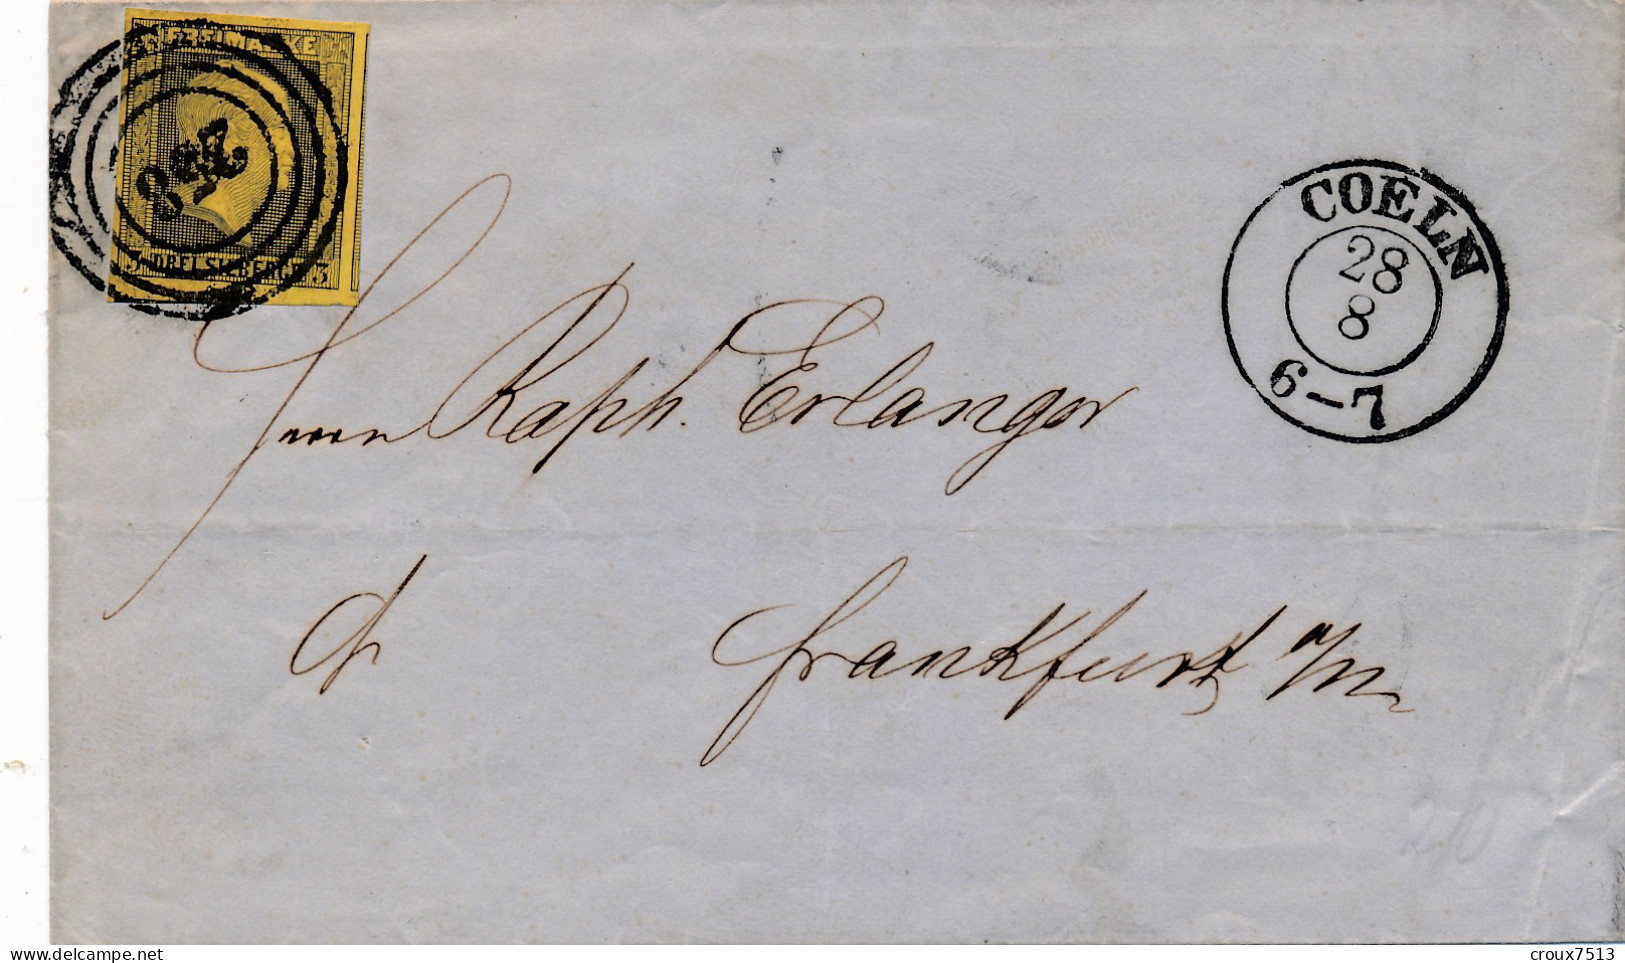 FREIMARKE
3 DREI SILBERGR. 3
COELN
28
8
6–7
Herrn Raph. Erlanger
Frankfurt a/M
www.delcampe.net
croux7513